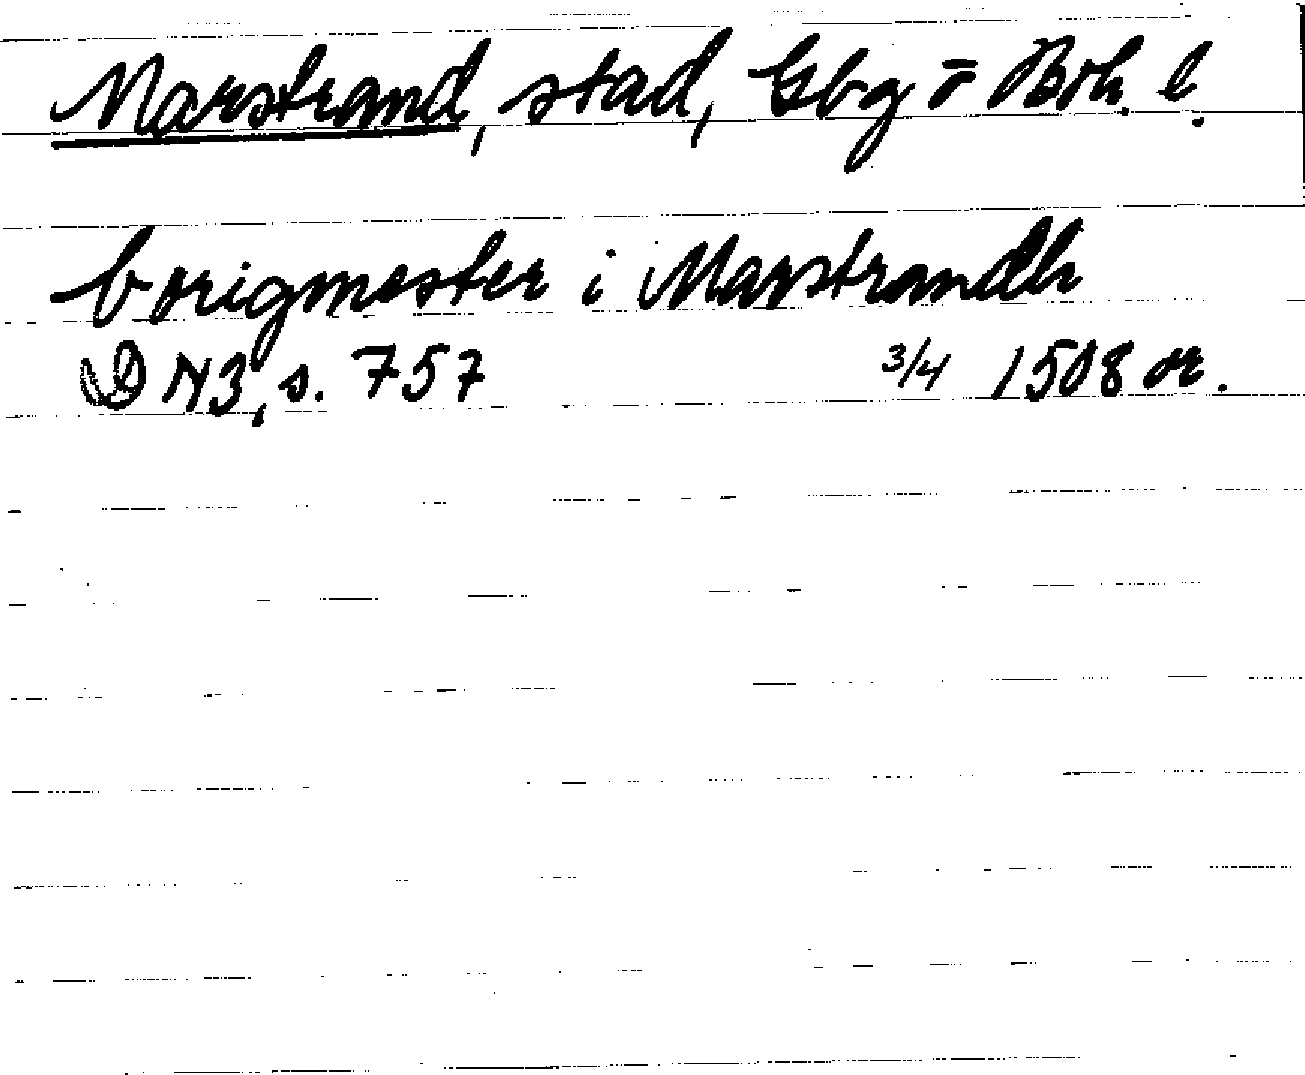 Marstrand, stad, Gbg ō Boh. l.
borigmester i Marstrandh
DN3, s. 757 3/4 1508 or.